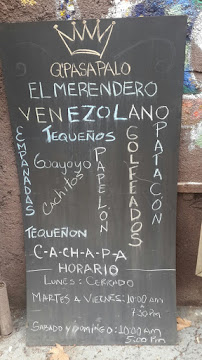 Q'PASAPALO
EL MERENDERO
VENEZOLANO
EMPANADAS
TEQUEÑOS
Guayoyo
Cachitos
PAPELÓN
GOLFEADOS
PATACÓN
TEQUEÑON
C-A-CH-A-P-A
HORARIO
LUNES: CERRADO
MARTES A VIERNES: 10:00 am
a
7:30 PM
SABADO Y DOMINGO: 10:00 am
5:00 PM